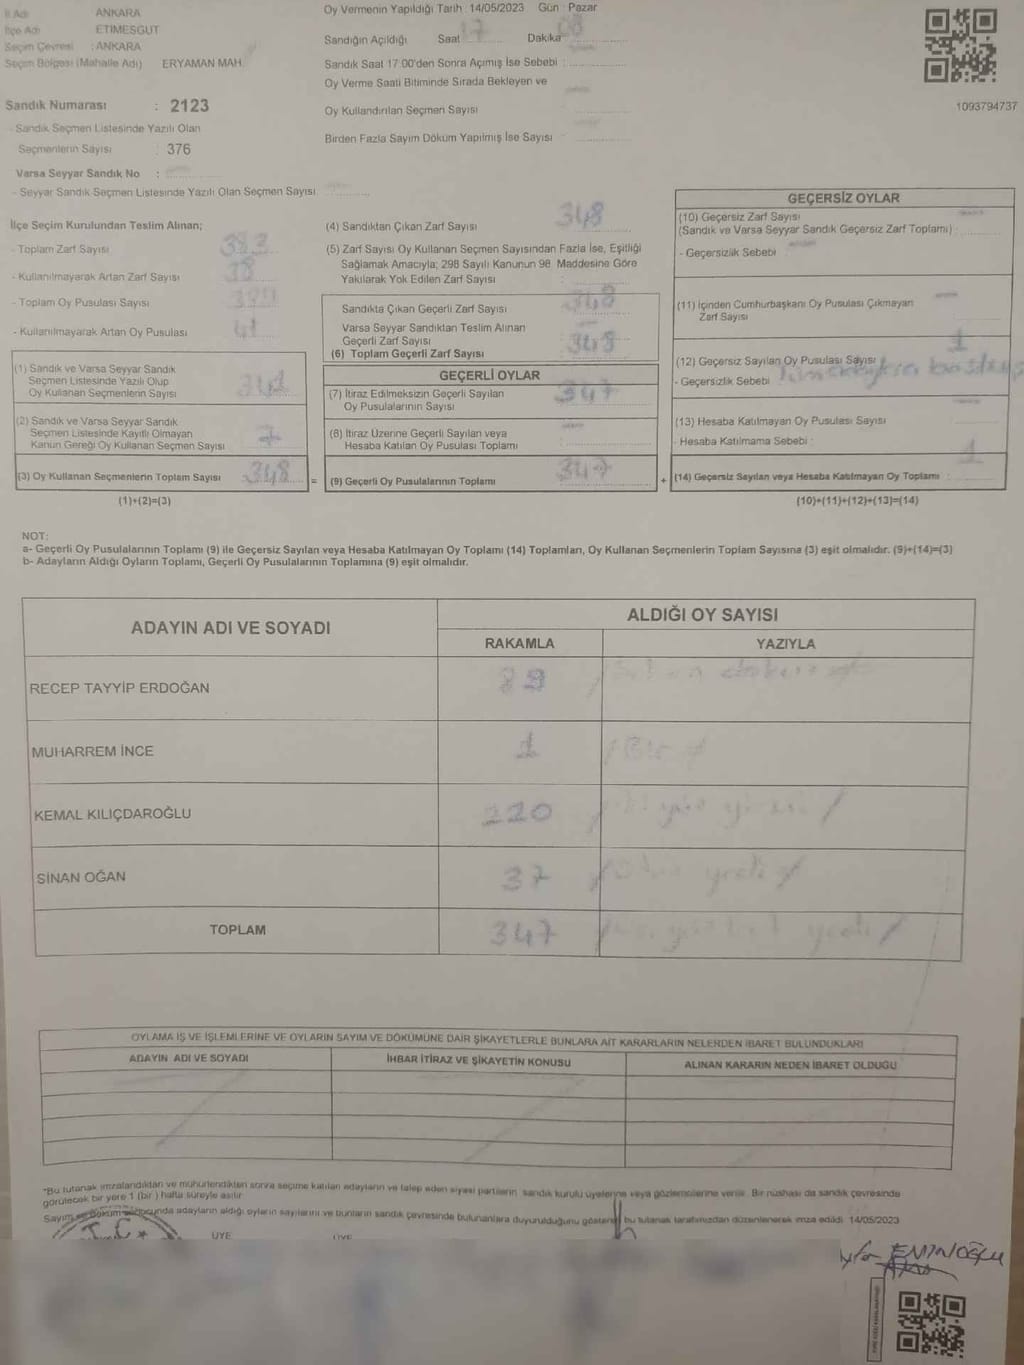 İli Adı ANKARA
İlçe Adı ETİMESGUT
Seçim Çevresi : ANKARA
Seçim Bölgesi (Mahalle Adı) ERYAMAN MAH.
Sandık Numarası : 2123
- Sandık Seçmen Listesinde Yazılı Olan
Seçmenlerin Sayısı : 376
Varsa Seyyar Sandık No :
- Seyyar Sandık Seçmen Listesinde Yazılı Olan Seçmen Sayısı
Oy Vermenin Yapıldığı Tarih : 14/05/2023 Gün : Pazar
Sandığın Açıldığı Saat 17 Dakika
Sandık Saat 17.00'den Sonra Açımış İse Sebebi :
Oy Verme Saati Bitiminde Sırada Bekleyen ve
Oy Kullandırılan Seçmen Sayısı
Birden Fazla Sayım Döküm Yapılmış İse Sayısı
1093794737
İlçe Seçim Kurulundan Teslim Alınan;
- Toplam Zarf Sayısı
- Kullanılmayarak Artan Zarf Sayısı
- Toplam Oy Pusulası Sayısı
- Kullanılmayarak Artan Oy Pusulası 41
(1) Sandık ve Varsa Seyyar Sandık
Seçmen Listesinde Yazılı Olup
Oy Kullanan Seçmenlerin Sayısı 341
(2) Sandık ve Varsa Seyyar Sandık
Seçmen Listesinde Kayıtlı Olmayan
Kanun Gereği Oy Kullanan Seçmen Sayısı 7
(3) Oy Kullanan Seçmenlerin Toplam Sayısı 348
(1)+(2)=(3)
(4) Sandıktan Çıkan Zarf Sayısı 348
(5) Zarf Sayısı Oy Kullanan Seçmen Sayısından Fazla İse, Eşitliği
Sağlamak Amacıyla; 298 Sayılı Kanunun 98. Maddesine Göre
Yakılarak Yok Edilen Zarf Sayısı :
Sandıkta Çıkan Geçerli Zarf Sayısı 348
Varsa Seyyar Sandıktan Teslim Alınan
Geçerli Zarf Sayısı
(6) Toplam Geçerli Zarf Sayısı 348
GEÇERLİ OYLAR
(7) İtiraz Edilmeksizin Geçerli Sayılan
Oy Pusulalarının Sayısı 347
(8) İtiraz Üzerine Geçerli Sayılan veya
Hesaba Katılan Oy Pusulası Toplamı
= (9) Geçerli Oy Pusulalarının Toplamı 347
GEÇERSİZ OYLAR
(10) Geçersiz Zarf Sayısı
(Sandık ve Varsa Seyyar Sandık Geçersiz Zarf Toplamı) :
- Geçersizlik Sebebi
(11) İçinden Cumhurbaşkanı Oy Pusulası Çıkmayan
Zarf Sayısı
(12) Geçersiz Sayılan Oy Pusulası Sayısı 1
- Geçersizlik Sebebi
(13) Hesaba Katılmayan Oy Pusulası Sayısı
- Hesaba Katılmama Sebebi :
+ (14) Geçersiz Sayılan veya Hesaba Katılmayan Oy Toplamı : 1
(10)+(11)+(12)+(13)=(14)
NOT:
a- Geçerli Oy Pusulalarının Toplamı (9) ile Geçersiz Sayılan veya Hesaba Katılmayan Oy Toplamı (14) Toplamları, Oy Kullanan Seçmenlerin Toplam Sayısına (3) eşit olmalıdır. (9)+(14)=(3)
b- Adayların Aldığı Oyların Toplamı, Geçerli Oy Pusulalarının Toplamına (9) eşit olmalıdır.
ADAYIN ADI VE SOYADI
ALDIĞI OY SAYISI
RAKAMLA YAZIYLA
RECEP TAYYİP ERDOĞAN
MUHARREM İNCE 1 Bir
KEMAL KILIÇDAROĞLU 220 yirmi
SİNAN OĞAN 37 yedi
TOPLAM 347 yedi
OYLAMA İŞ VE İŞLEMLERİNE VE OYLARIN SAYIM VE DÖKÜMÜNE DAİR ŞİKAYETLERLE BUNLARA AİT KARARLARIN NELERDEN İBARET BULUNDUKLARI
ADAYIN ADI VE SOYADI İHBAR İTİRAZ VE ŞİKAYETİN KONUSU ALINAN KARARIN NEDEN İBARET OLDUĞU
*Bu tutanak imzalandıktan ve mühürlendikten sonra seçime katılan adayların ve talep eden siyasi partilerin sandık kurulu üyelerine veya gözlemcilerine verilir. Bir nüshası da sandık çevresinde
görülecek bir yere 1 (bir) hafta süreyle asılır.
Sayım ve döküm sonucunda adayların aldığı oyların sayılarını ve bunların sandık çevresinde bulunanlara duyurulduğunu gösteren bu tutanak tarafımızdan düzenlenerek imza edildi. 14/05/2023
T.C.
ÜYE ÜYE
EMİNOĞLU